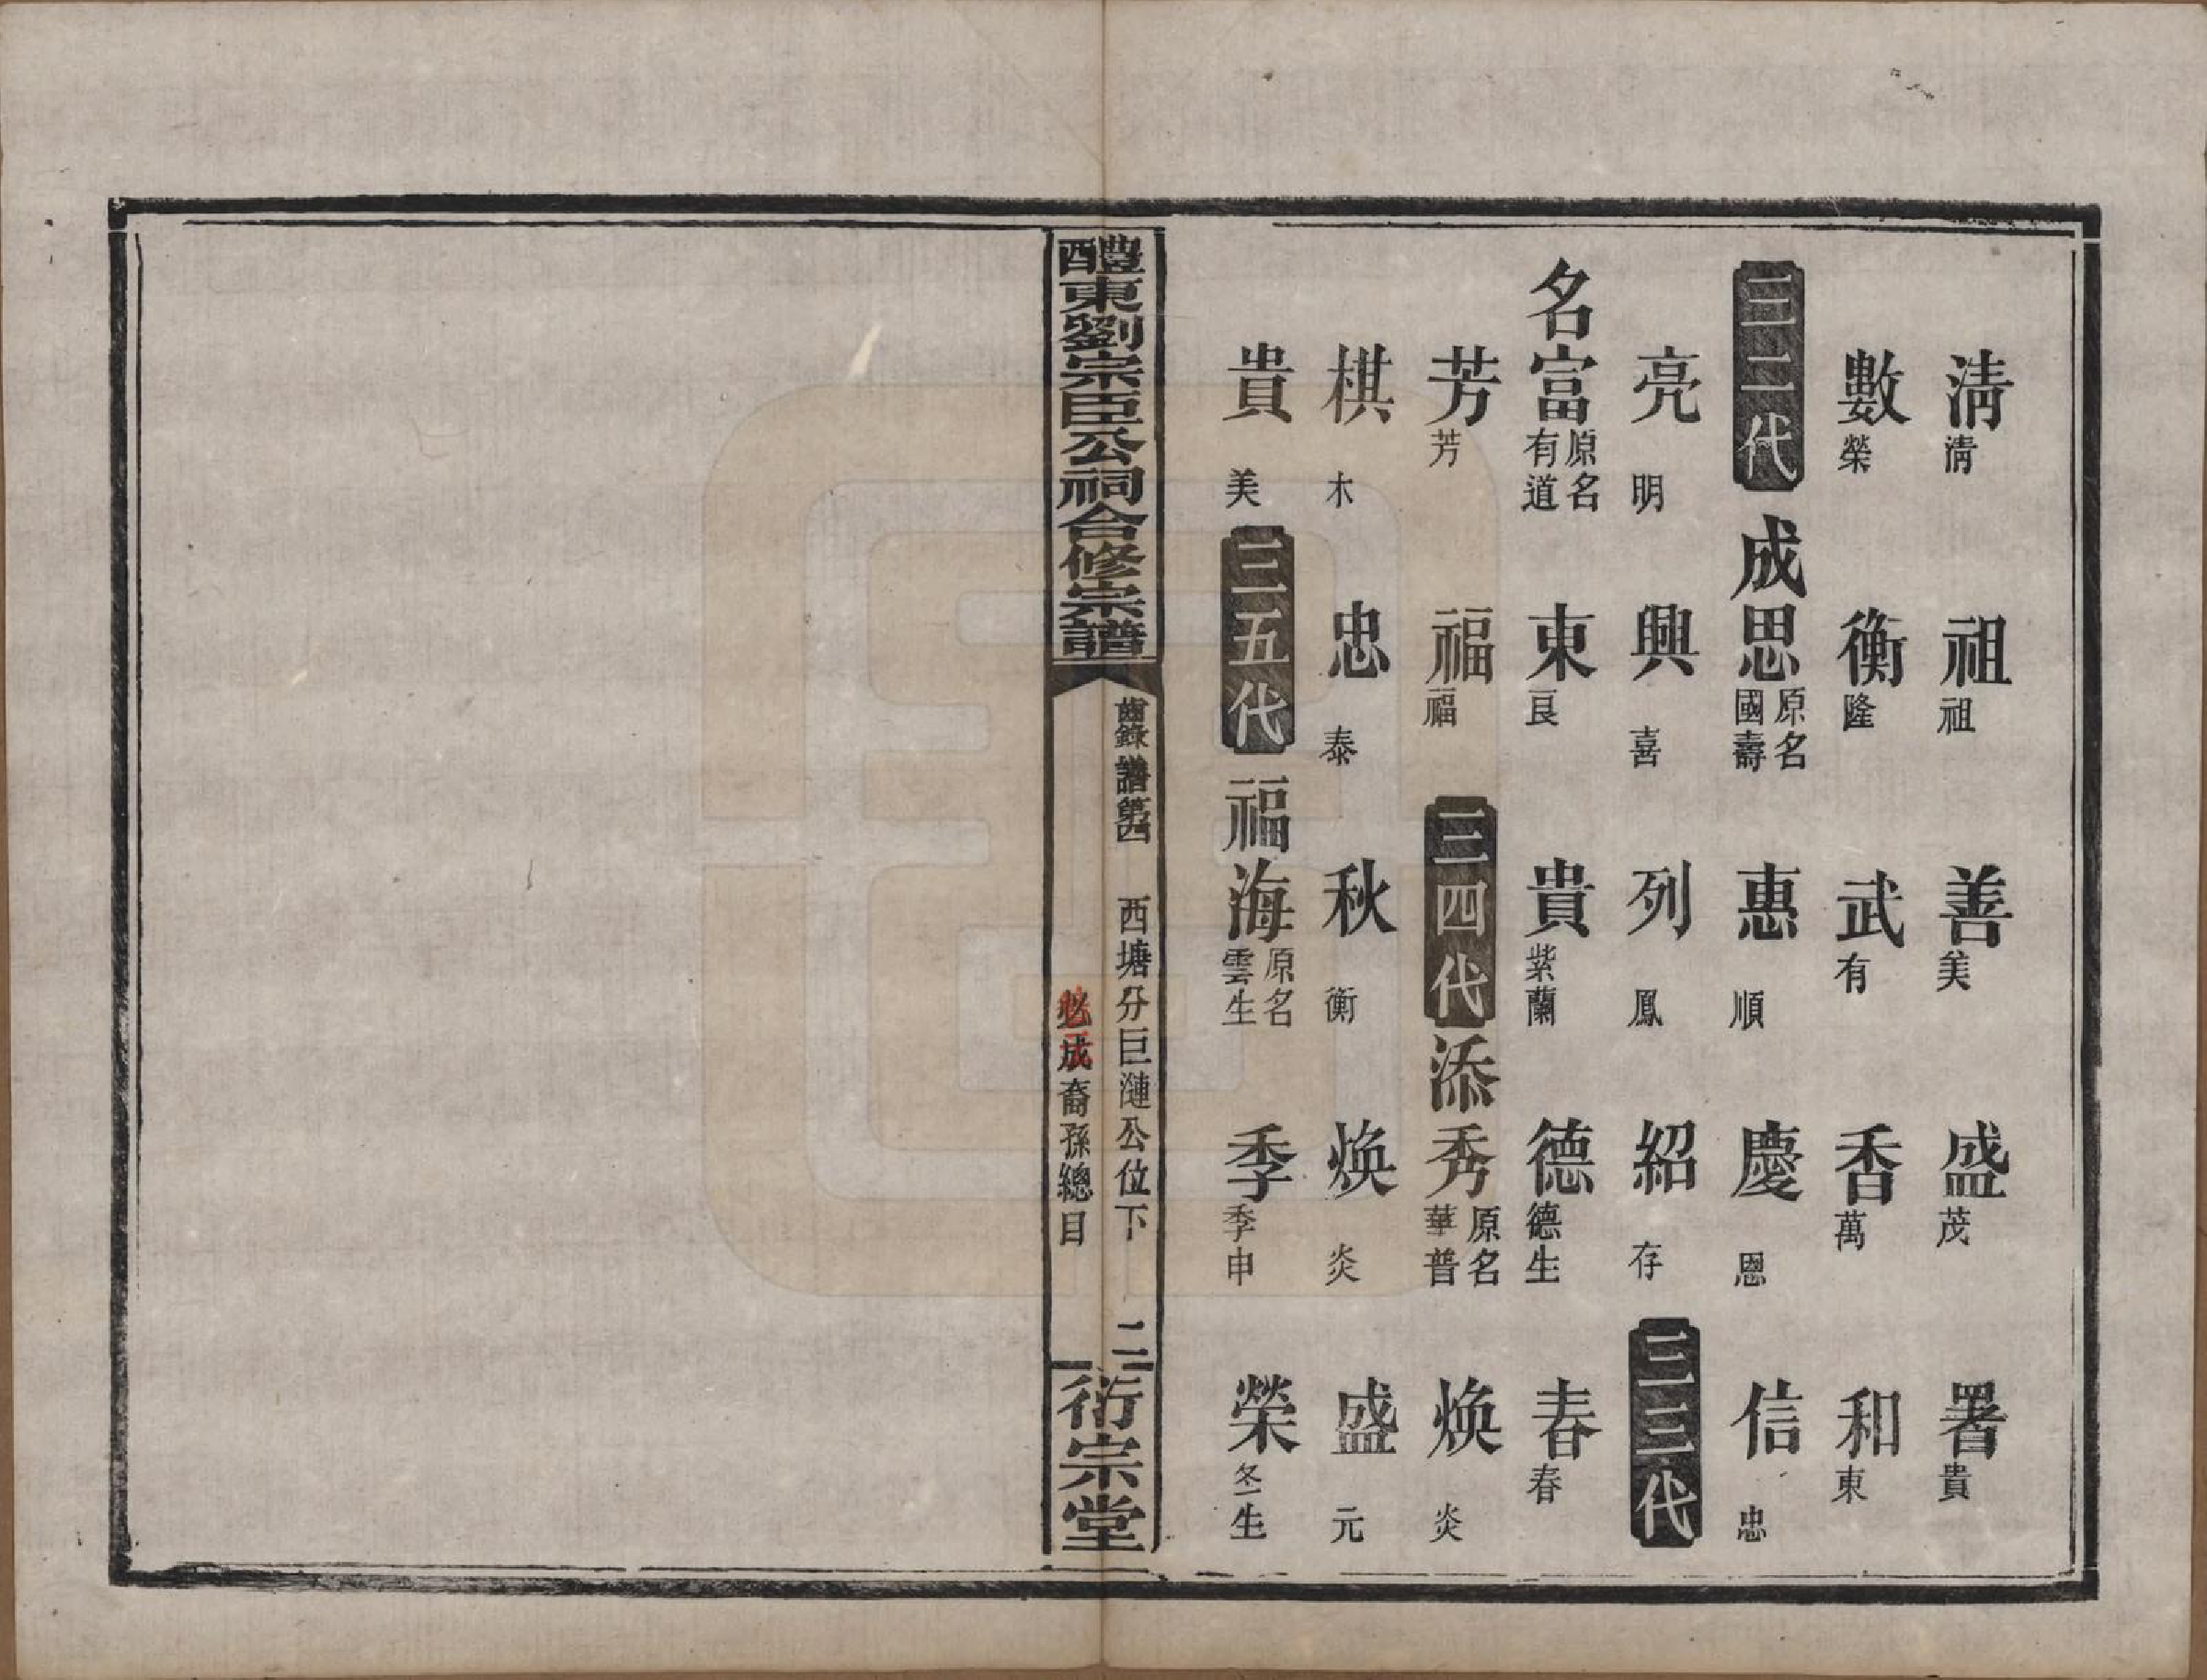 清淸 祖祖 善美 盛茂 署貴
數榮 衡隆 武有 香萬 和東
三二代 成思原名國壽 惠順 慶恩 信忠
亮明 興喜 列鳳 紹存 三三代
名富原名有道 東良 貴紫蘭 德德生 春春
芳芳 福福 三四代 添秀原名華普 煥炎
棋木 忠泰 秋衡 煥炎 盛元
貴美 三五代 福海原名雲生 季季申 榮冬生
醴東劉宗臣公祠合修宗譜
齒錄 譜第四 西塘分巨漣公位下 二
必成裔孫總目
衍宗堂